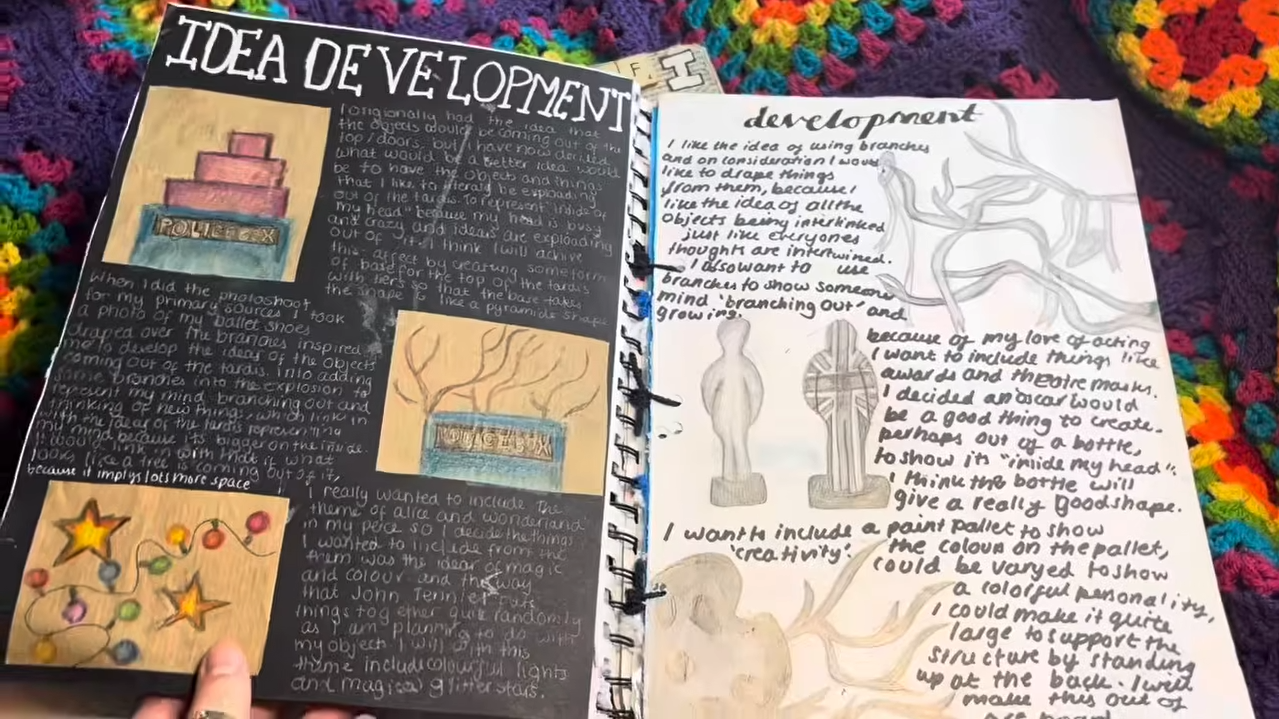 IDEA DEVELOPMENT
I origionally had the idea that
the objects would be coming out of the
top/doors, but I have now decided
what would be a better idea would
be to have the objects and things
that I like to literaly be exploading
out of the tardis. to represent "inside of
my head" because my head is busy
and crazy and ideas are exploading
out of it. I think I will achive
this affect by creating some form
of base for the top of the tardis
with tiers so that the base takes
the shape of like a pyramids shape
POLICE BOX
When I did the photoshoot
for my primary sources I took
a photo of my ballet shoes
draped over the branches inspired
me to develop the idea of the objects
coming out of the tardis. Into adding
some branches into the explosion to
represent my mind branching out and
thinking of new things, which links in
with the idea of the tardis representing
my mind because its bigger on the inside.
I would link in with that if what
looks like a tree is coming out of it,
because it implys lots more space
POLICE BOX
I really wanted to include the
theme of alice and wonderland
in my peice so I decide the things
I wanted to include from the
them was the idea of magic
and colour and the way
that John Tenniel puts
things together quite randomly
as I am planning to do with
my objects I will with this
theme include colourful lights
and magical glitter stars.
F I
development
I like the idea of using branches
and on consideration I would
like to drape things
from them, because I
like the idea of all the
objects being interlinked
just like everyones
thoughts are intertwined.
I also want to use
branches to show someones
mind 'branching out' and
growing.
because of my love of acting
I want to include things like
awards and theatre masks.
I decided an oscar would
be a good thing to create.
perhaps out of a bottle,
to show its "inside my head".
I think the bottle will
give a really good shape.
I want to include a paint pallet to show
'creativity'. the colour on the pallet,
could be varyed to show
a colorful personality,
I could make it quite
large to support the
structure by standing
up at the back. I will
make this out of